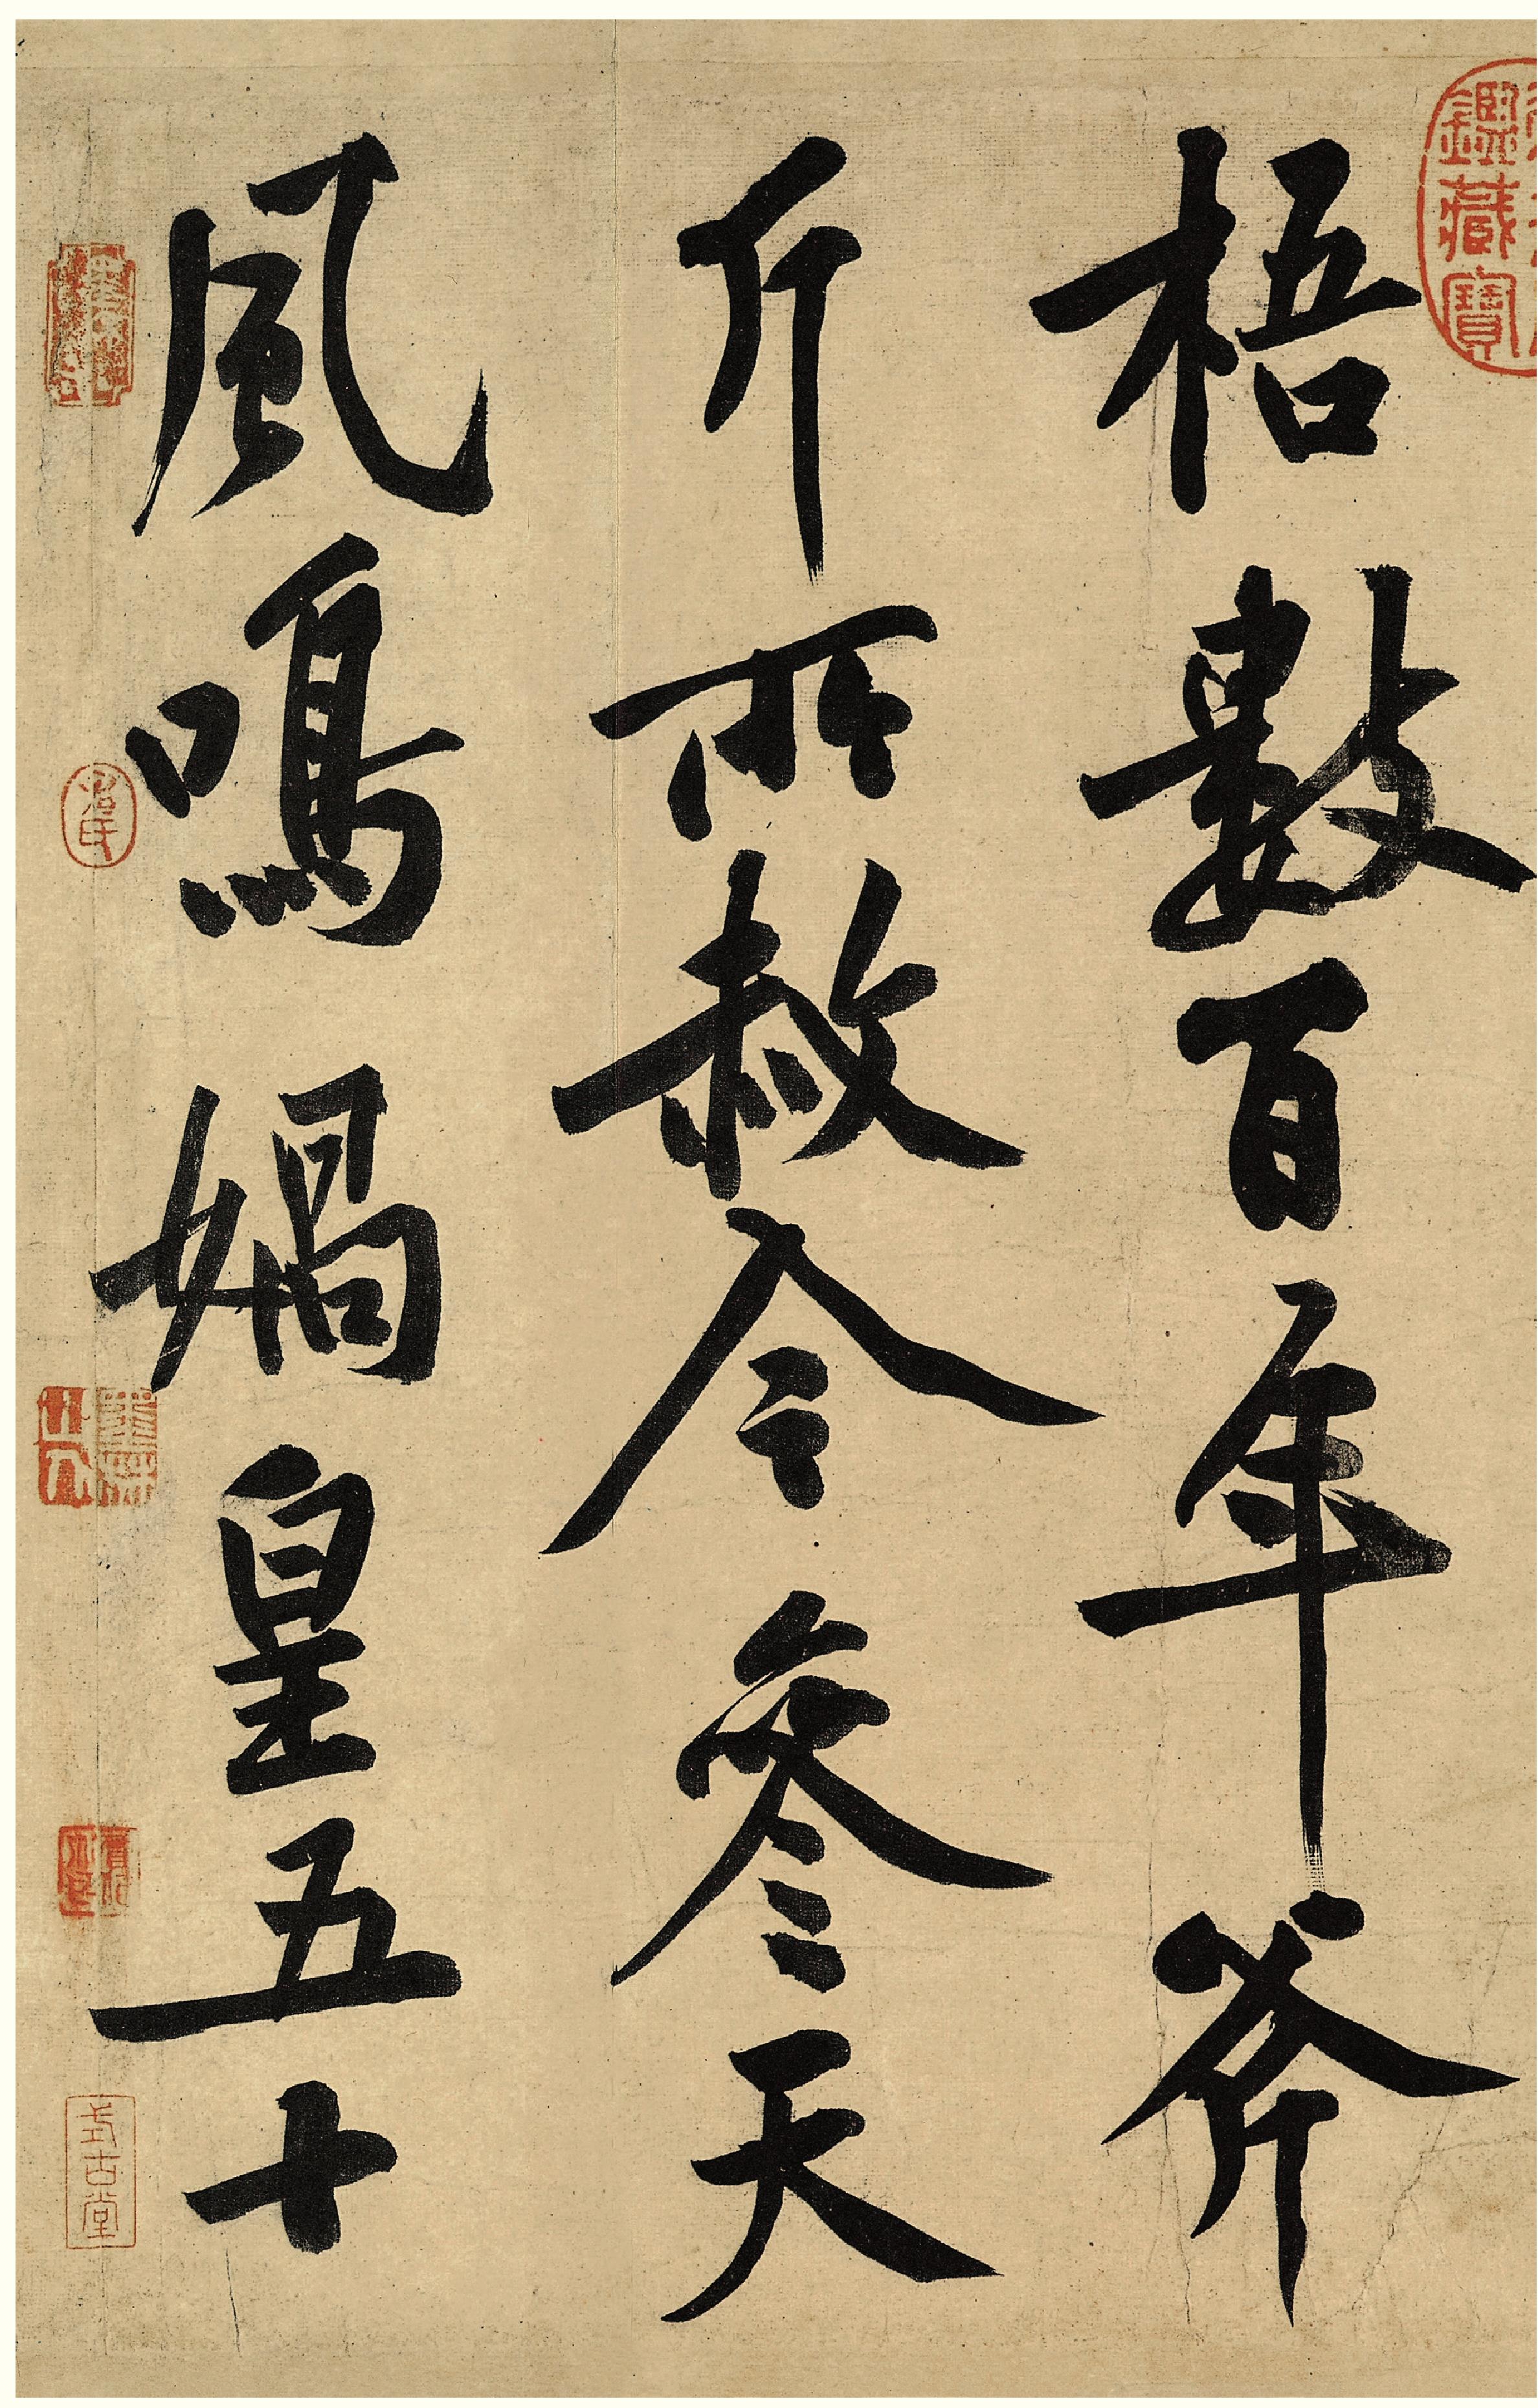 梧數百年斧
斤所赦今參天
風鳴媧皇五十
鑑藏寶
式古堂